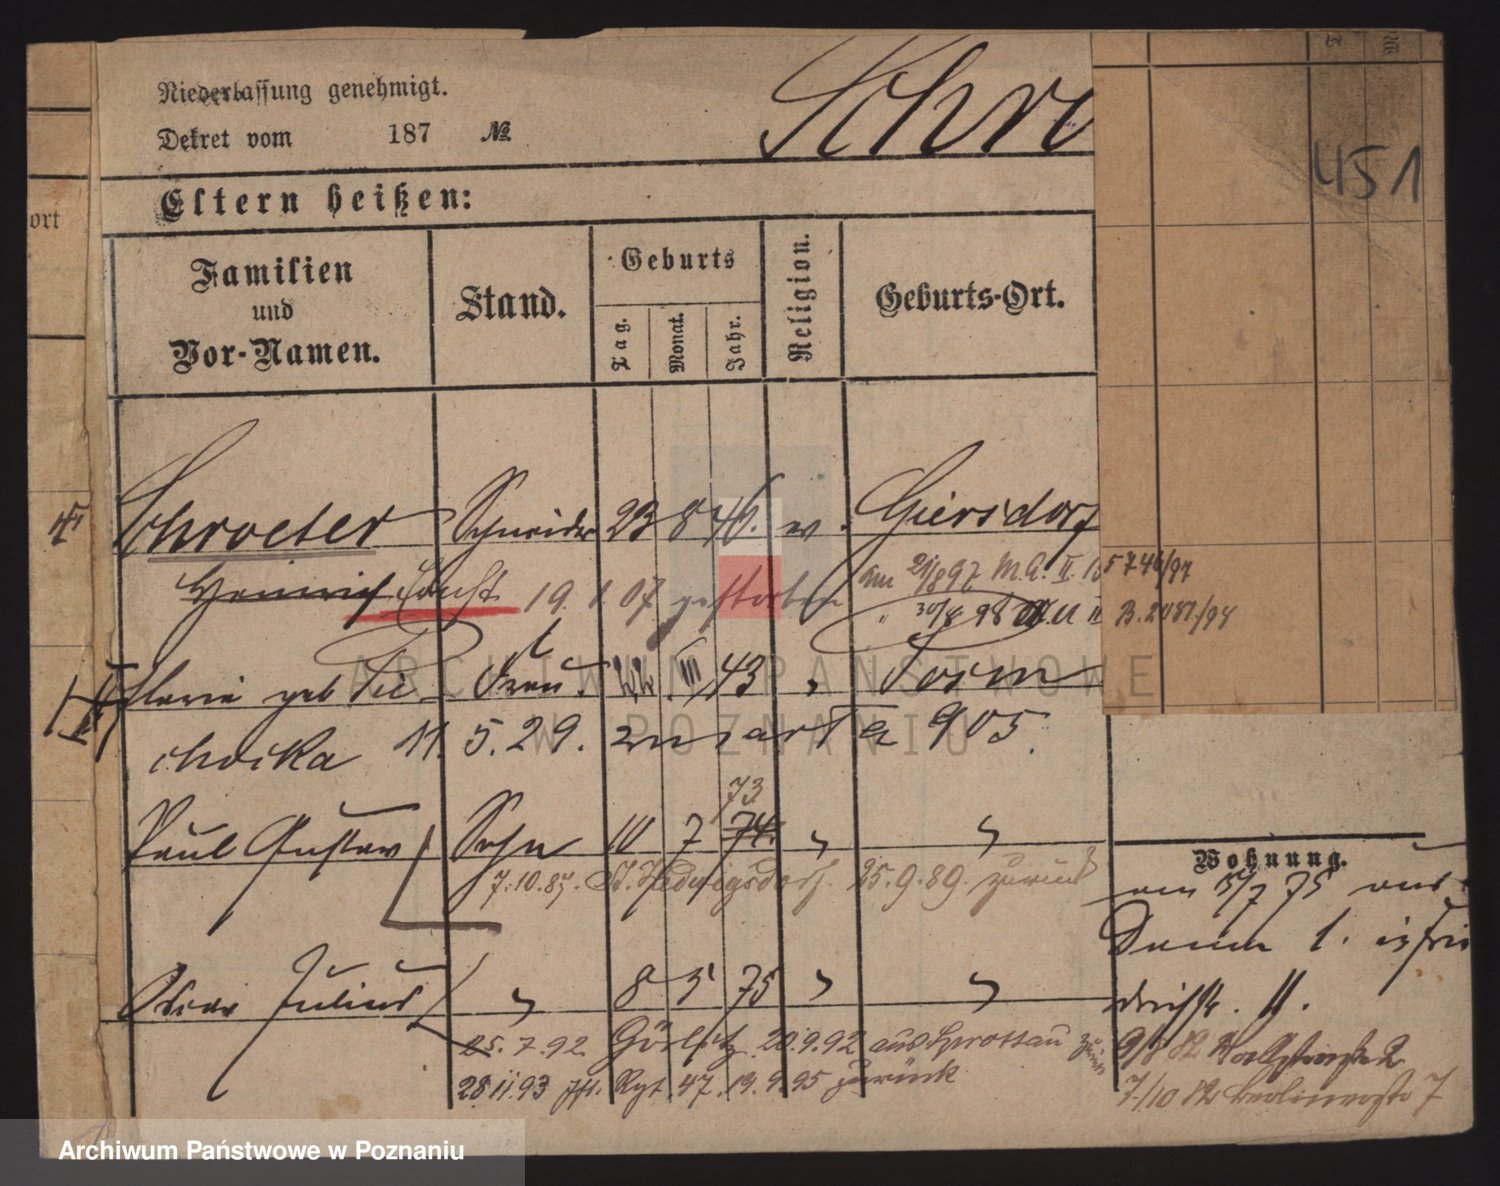 Niederlassung genehmigt.
Dekret vom 187 №
Schro
451
Eltern heißen:
ort
Familien und Vor-Namen.
Stand.
Geburts
Tag.
Monat.
Jahr.
Religion.
Geburts-Ort.
Schroeter Schneider 23 8 46. ev. Giersdorf
Heinrich 19. 1. 07 gestorben
am 21/8 97 M.A. II. B 5746/97
" 30/4 98 II B. 2081/98
Marie geb Pie- Frau. 22 III 43 " Posen
chocka 11. 5. 29. a 905.
73
Paul Gustav Sohn 10 7 74. " "
7.10.87. Hedwigsdorf. 25.9.89. zurück
Wohnung.
am 5/7 75
Oscar Julius " 8 5 75 " "
11.
25.7.92 Görlitz 20.9.92 aus Sprottau zurück
9/8 82 2
28 11.93 Rgt. 47. 19.9.95 zurück
7/10 82 Berlinerstr 7
ARCHIWUM PAŃSTWOWE
W POZNANIU
Archiwum Państwowe w Poznaniu